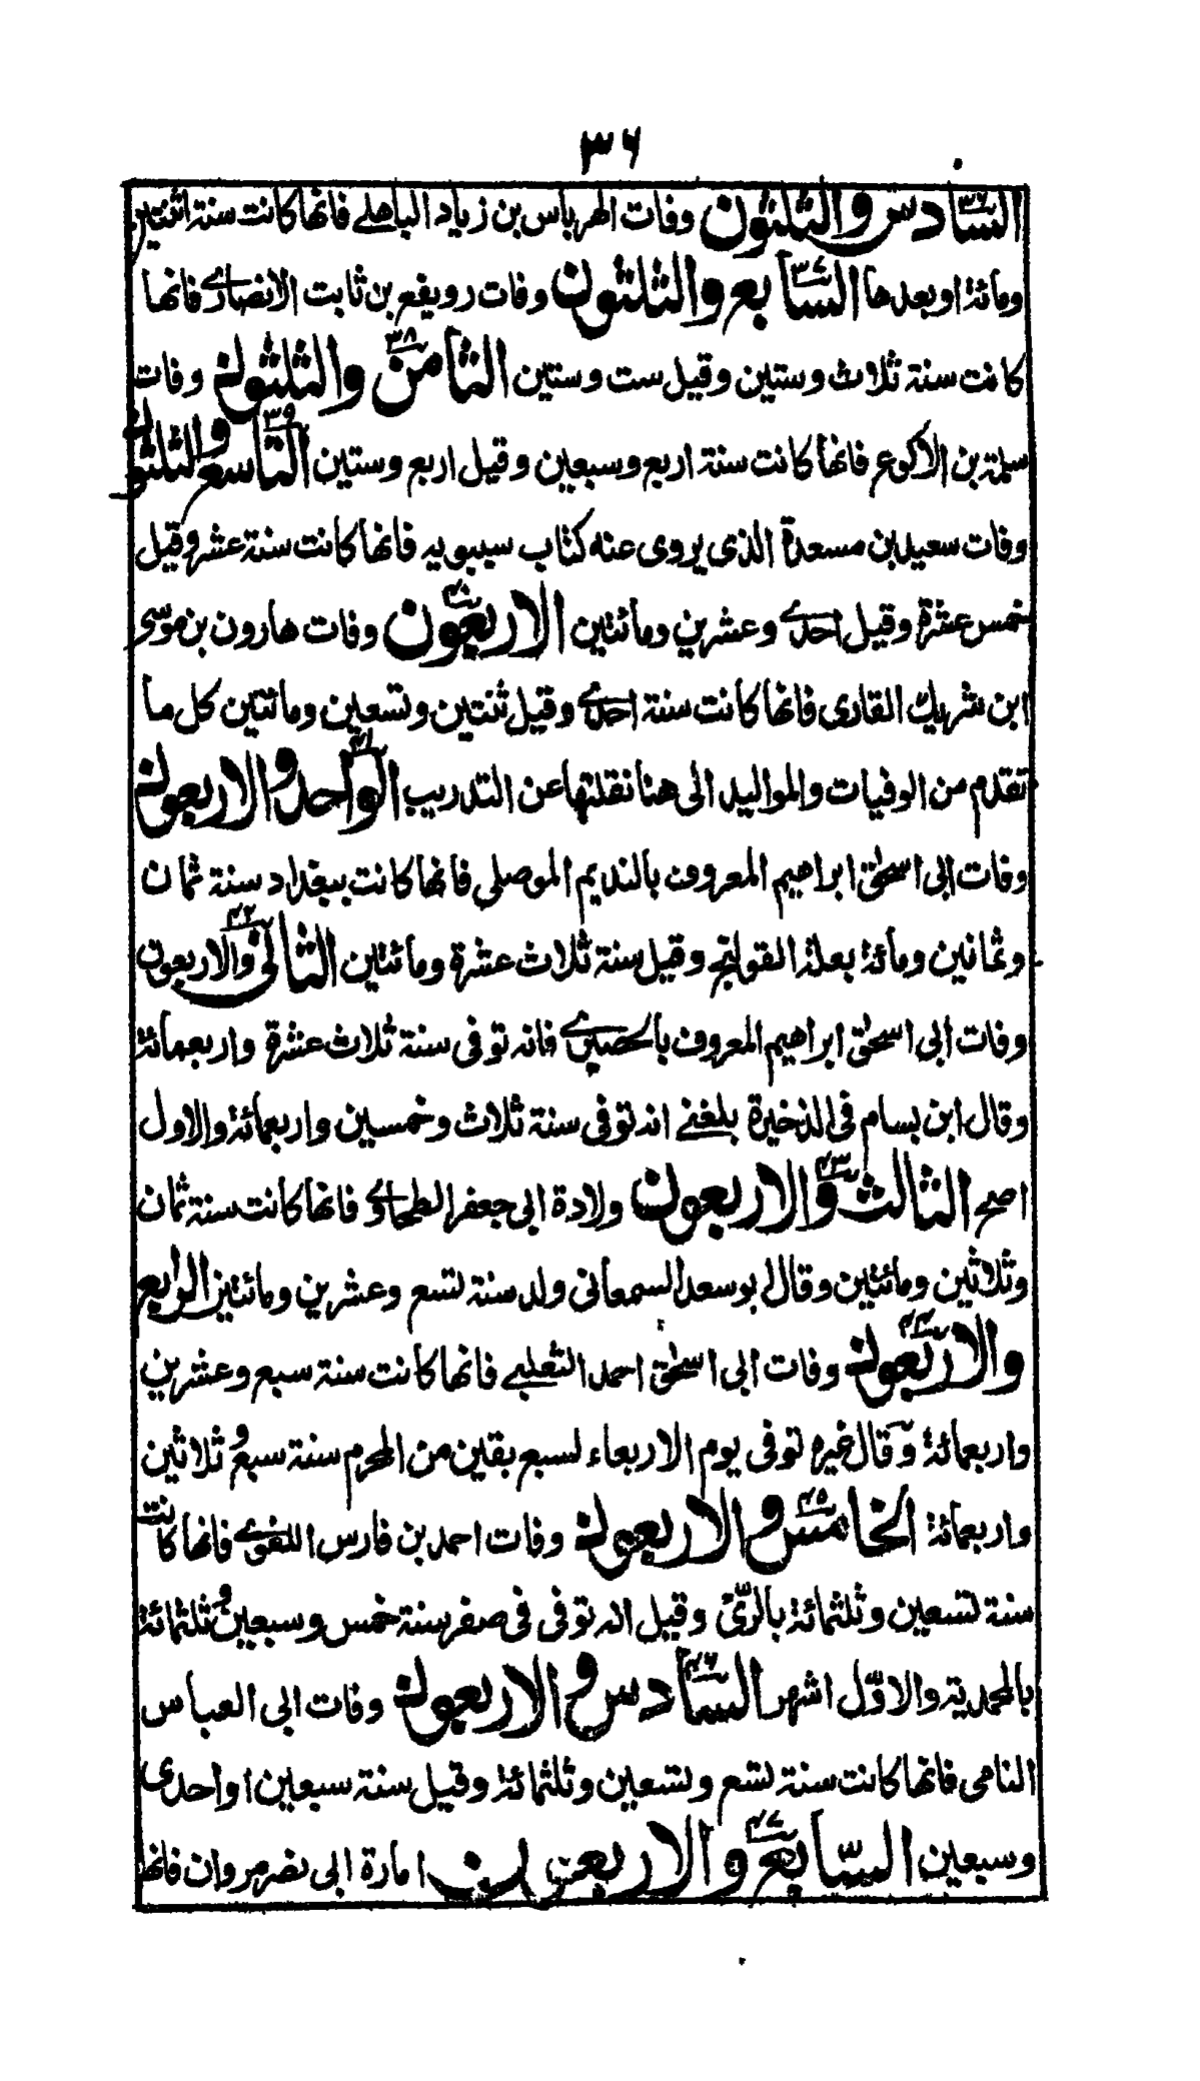 ٣٦
السادس والثلثون وفات الهرباس بن زياد الباهلے فانها كانت سنة اثنتين
ومائة او بعدها السابع والثلثون وفات رويفع بن ثابت الانصارے فانها
كانت سنة ثلاث وستين وقيل ست وستين الثامن والثلثون وفات
سلمة بن الاكوع فانها كانت سنة اربع وسبعين وقيل اربع وستين التاسع والثلثون
وفات سعيد بن مسعدة الذى يروى عنه كتاب سيبويه فانها كانت سنة عشر وقيل
خمس عشرة وقيل احدے وعشرين ومائتين الاربعون وفات هارون بن موسى
ابن شريك القارى فانها كانت سنة احدے وقيل ثنتين وتسعين ومائتين كل ما
تقدم من الوفيات والمواليد الى هنا نقلتها عن التدريب الواحد والاربعون
وفات ابى اسحٰق ابراهيم المعروف بالنديم الموصلى فانها كانت ببغداد سنة ثمان
وثمانين ومائة بعلة القولنج وقيل سنة ثلاث عشرة ومائتين الثانى والاربعون
وفات ابى اسحٰق ابراهيم المعروف بالحصيرے فانه توفى سنة ثلاث عشرة واربعمائة
وقال ابن بسام فى الذخيرة بلغنے انه توفى سنة ثلاث وخمسين واربعمائة والاول
اصح الثالث والاربعون ولادة ابى جعفر الطحاوے فانها كانت سنة ثمان
وثلاثين ومائتين وقال ابو سعد السمعانى ولد سنة تسع وعشرين ومائتين الرابع
والاربعون وفات ابى اسحٰق احمد الثعلبے فانها كانت سنة سبع وعشرين
واربعمائة وقال غيره توفى يوم الاربعاء لسبع بقين من المحرم سنة سبع و ثلاثين
واربعمائة الخامس والاربعون وفات احمد بن فارس اللغوے فانها كانت
سنة تسعين وثلثمائة بالرّىّ وقيل انه توفى فى صفر سنة خمس وسبعين وثلثمائة
بالمحمدية والاوّل اشهر السادس والاربعون وفات ابى العباس
النامى فانها كانت سنة تسع وتسعين وثلثمائة وقيل سنة سبعين او احدى
وسبعين السابع والاربعون امارة ابى نصر مروان فانها